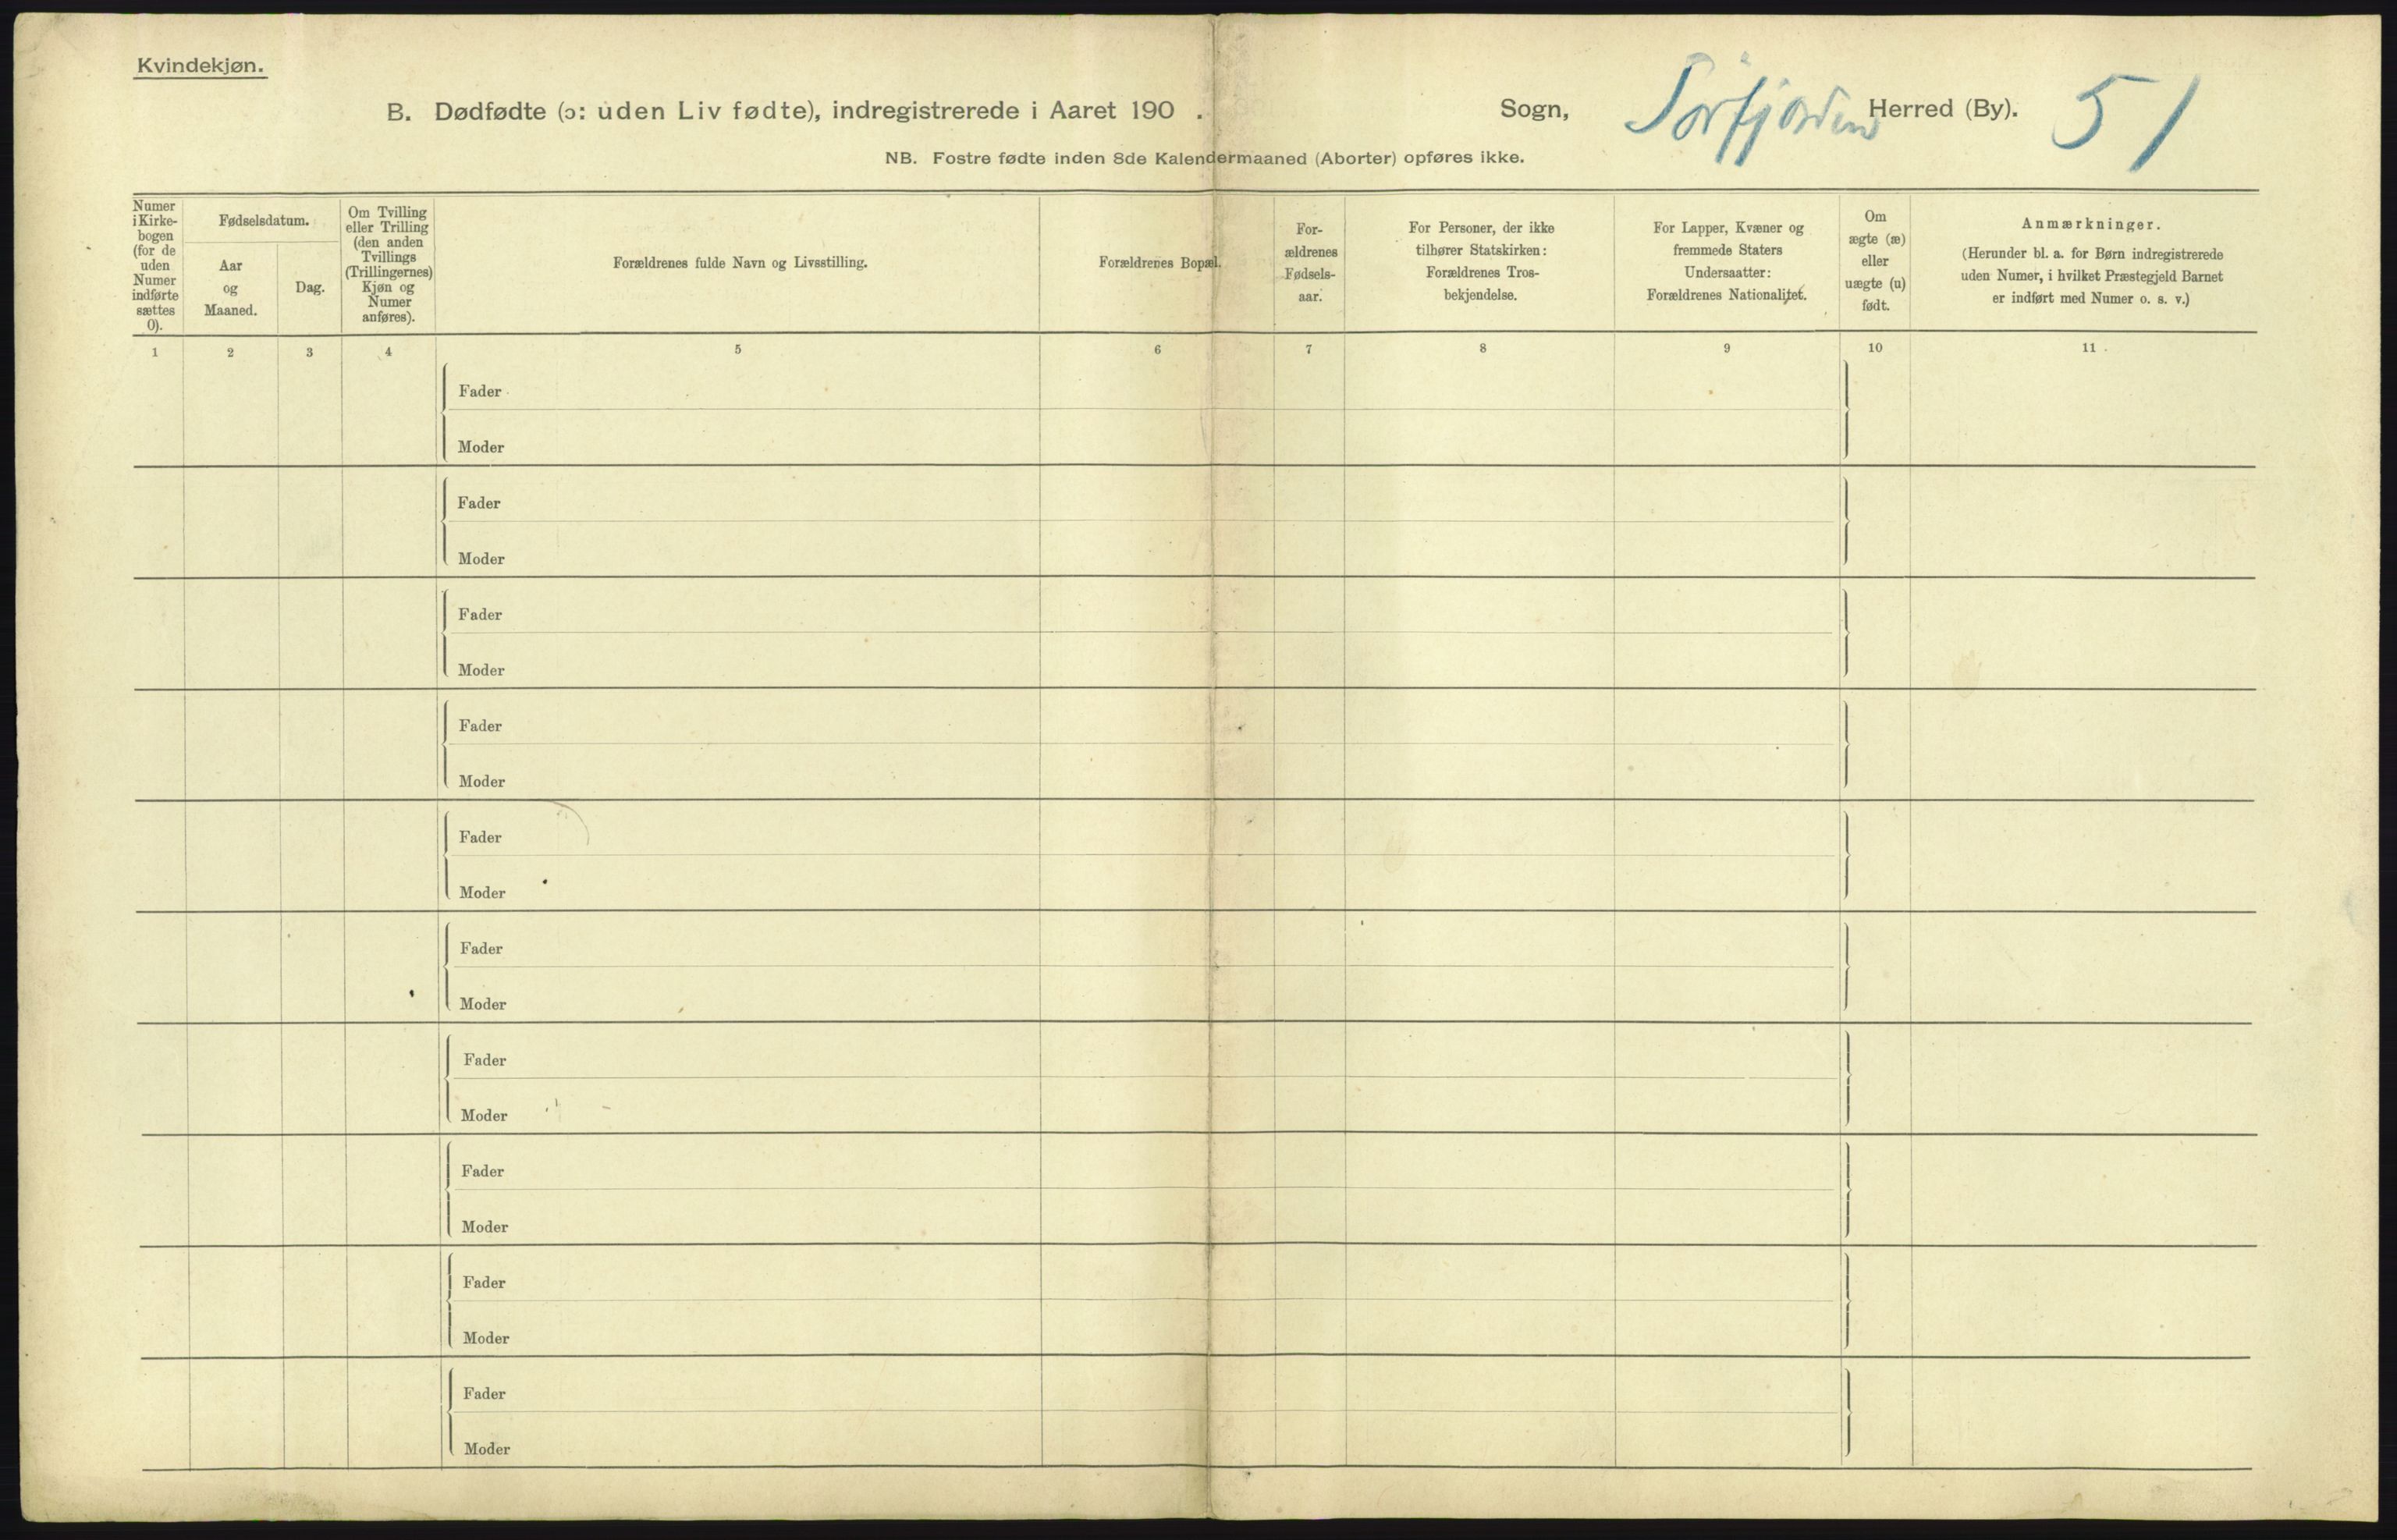 Kvindekjøn.
B. Dødfødte (ɔ: uden Liv fødte), indregistrerede i Aaret 190 . Sogn, Sørfjorden Herred (By). 51
NB. Fostre fødte inden 8de Kalendermaaned (Aborter) opføres ikke.
Numer
i Kirke-
bogen
(for de
uden
Numer
indførte
sættes
0).
Fødselsdatum.
Aar
og
Maaned.
Dag.
Om Tvilling
eller Trilling
(den anden
Tvillings
(Trillingernes)
Kjøn og
Numer
anføres).
Forældrenes fulde Navn og Livsstilling.
Forældrenes Bopæl.
For-
ældrenes
Fødsels-
aar.
For Personer, der ikke
tilhører Statskirken:
Forældrenes Tros-
bekjendelse.
For Lapper, Kvæner og
fremmede Staters
Undersaatter:
Forældrenes Nationalitet.
Om
ægte (æ)
eller
uægte (u)
født.
Anmærkninger.
(Herunder bl. a. for Børn indregistrerede
uden Numer, i hvilket Præstegjeld Barnet
er indført med Numer o. s. v.)
1 2 3 4 5 6 7 8 9 10 11
Fader
Moder
Fader
Moder
Fader
Moder
Fader
Moder
Fader
Moder
Fader
Moder
Fader
Moder
Fader
Moder
Fader
Moder
Fader
Moder